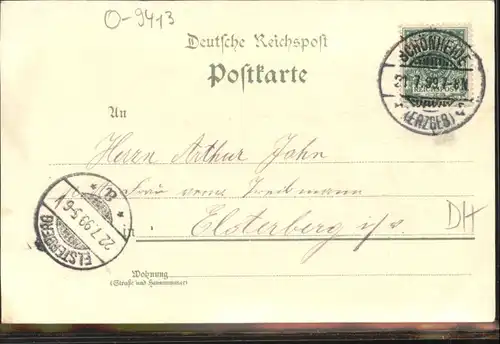 O-9413
Deutsche Reichspost
Postkarte
SCHÖNHEIDE
21.7.99.7-8N.
(ERZGEB)
REICHSPOST
An
Herrn Arthur John
Frau
in Elsterberg i/s.
DH
ELSTERBERG
22.7.99.5-6V
Wohnung
(Straße und Hausnummer)